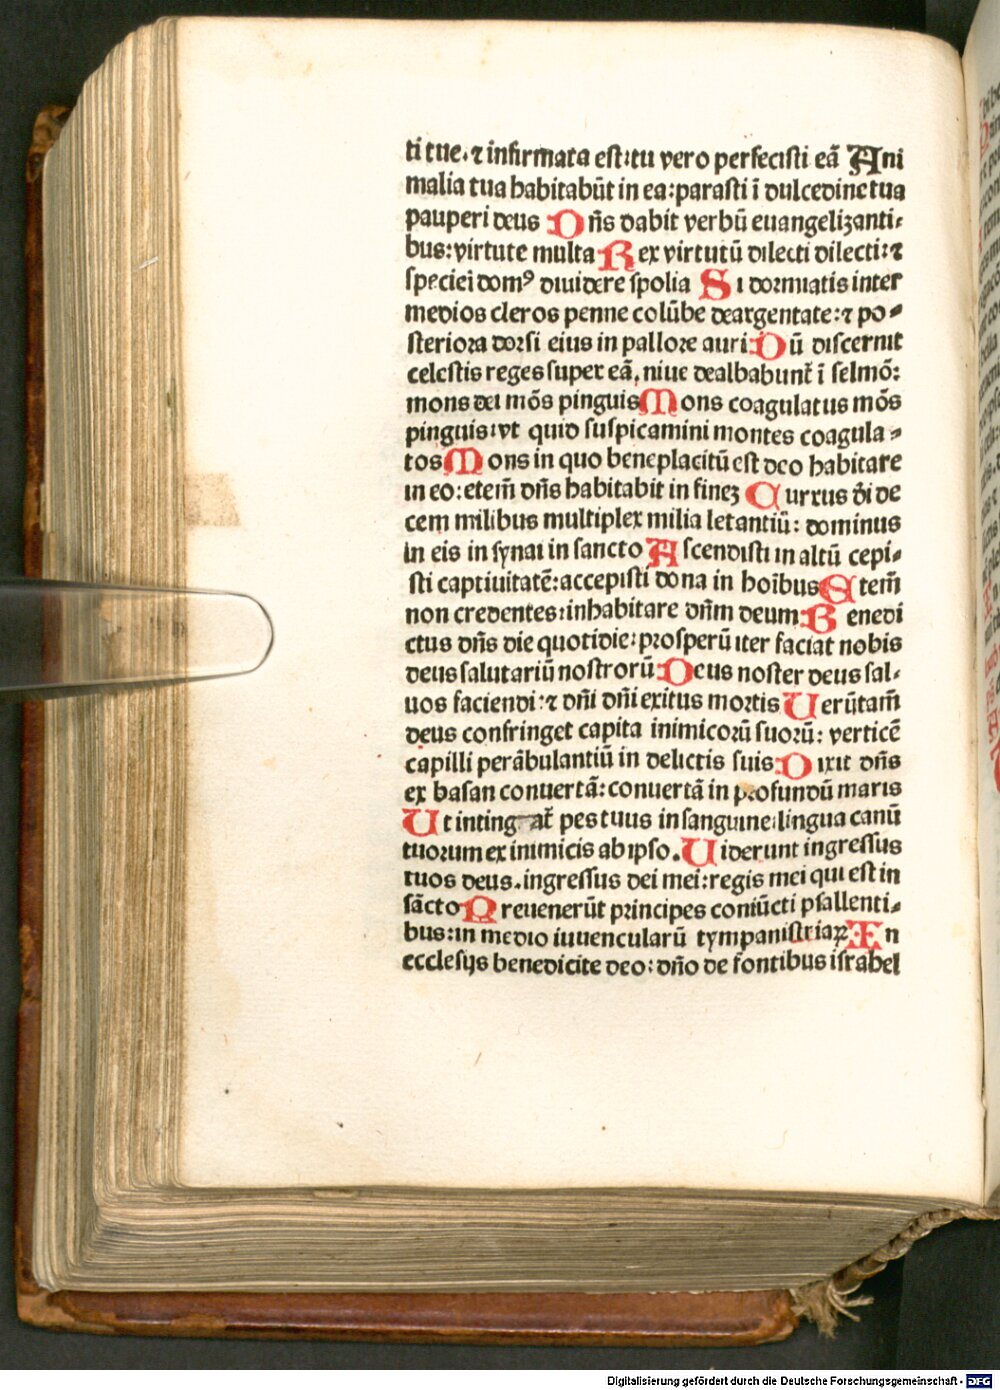 ti tue.⁊ infirmata est:tu vero perfecisti eã Ani
malia tua habitabũt in ea:parasti ĩ dulcedine tua
pauperi deus Dñs dabit verbũ euangelizanti-
bus:virtute multa Rex virtutũ dilecti dilecti:⁊
speciei domꝰ diuidere spolia Si dormiatis inter
medios cleros penne colũbe deargentate:⁊ po-
steriora dorsi eius in pallore auri:Dũ discernit
celestis reges super eã, niue dealbabunt̃ ĩ selmõ:
mons dei mõs pinguis Mons coagulatus mõs
pinguis:vt quid suspicamini montes coagula-
tos Mons in quo beneplacitũ est deo habitare
in eo:etem̃ dñs habitabit in fineʒ Currus dĩ de
cem milibus multiplex milia letantiũ: dominus
in eis in synai in sancto Ascendisti in altũ cepi-
sti captiuitatẽ:accepisti dona in hoĩbus Etem̃
non credentes:inhabitare dñm deum:Benedi
ctus dñs die quotidie:prosperũ iter faciat nobis
deus salutariũ nostrorũ:Deus noster deus sal-
uos faciendi:⁊ dñi dñi exitus mortis Uerũtam̃
deus confringet capita inimicorũ suorũ: verticẽ
capilli perãbulantiũ in delictis suis:Dixit dñs
ex basan conuertã:conuertã in profundũ maris
Ut inting at̃ pes tuus in sanguine:lingua canũ
tuorum ex inimicis ab ipso.Uiderunt ingressus
tuos deus.ingressus dei mei:regis mei qui est in
sãcto Preuenerũt principes coniũcti psallenti-
bus:in medio iuuencularũ tympanistriaꝝ:In
ecclesijs benedicite deo:dño de fontibus israhel
Digitalisierung gefördert durch die Deutsche Forschungsgemeinschaft - DFG